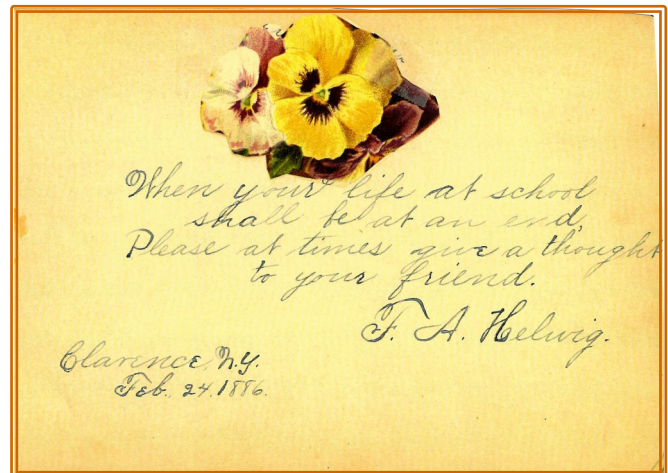 When your life at school
shall be at an end,
Please at times give a thought
to your friend.
F. A. Helwig.
Clarence, N.Y.
Feb. 24. 1886.